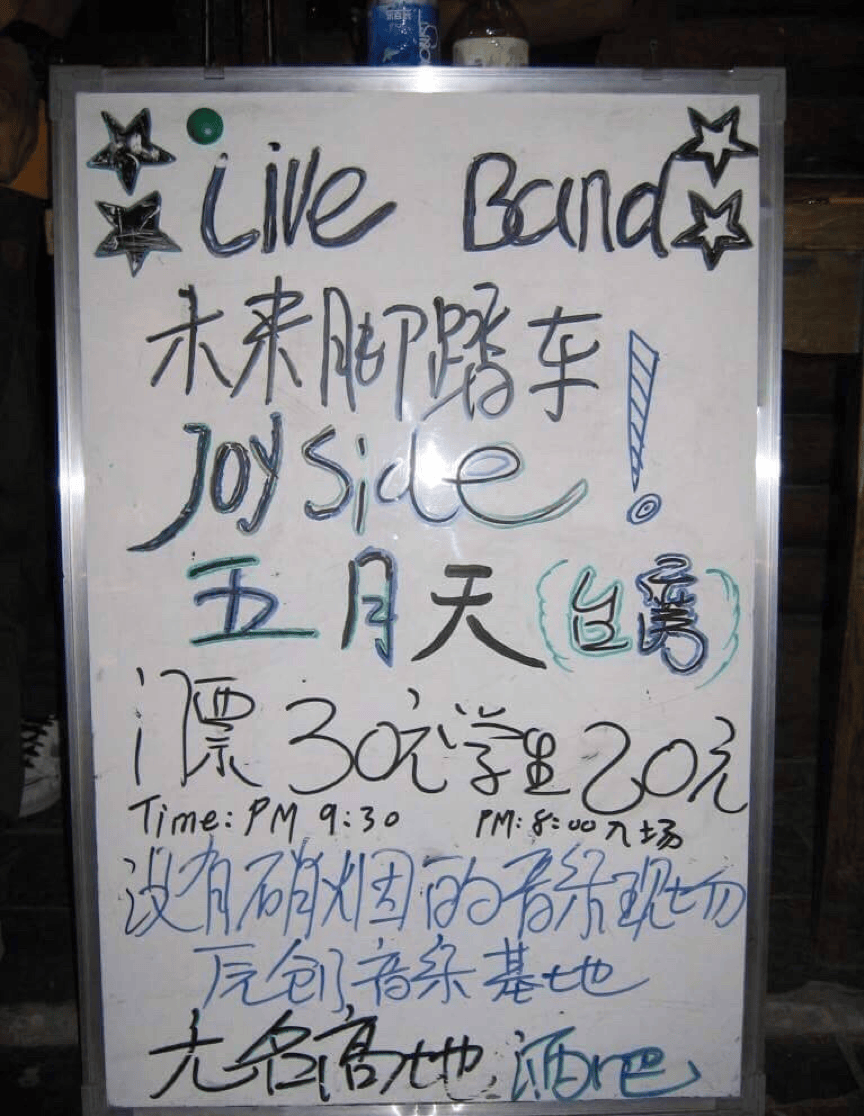 Live Band
未来脚踏车！
Joyside
五月天（台湾）
门票30元学生20元
Time: PM 9:30 PM: 8:00入场
没有硝烟的音乐现场
原创音乐基地
无名高地 酒吧